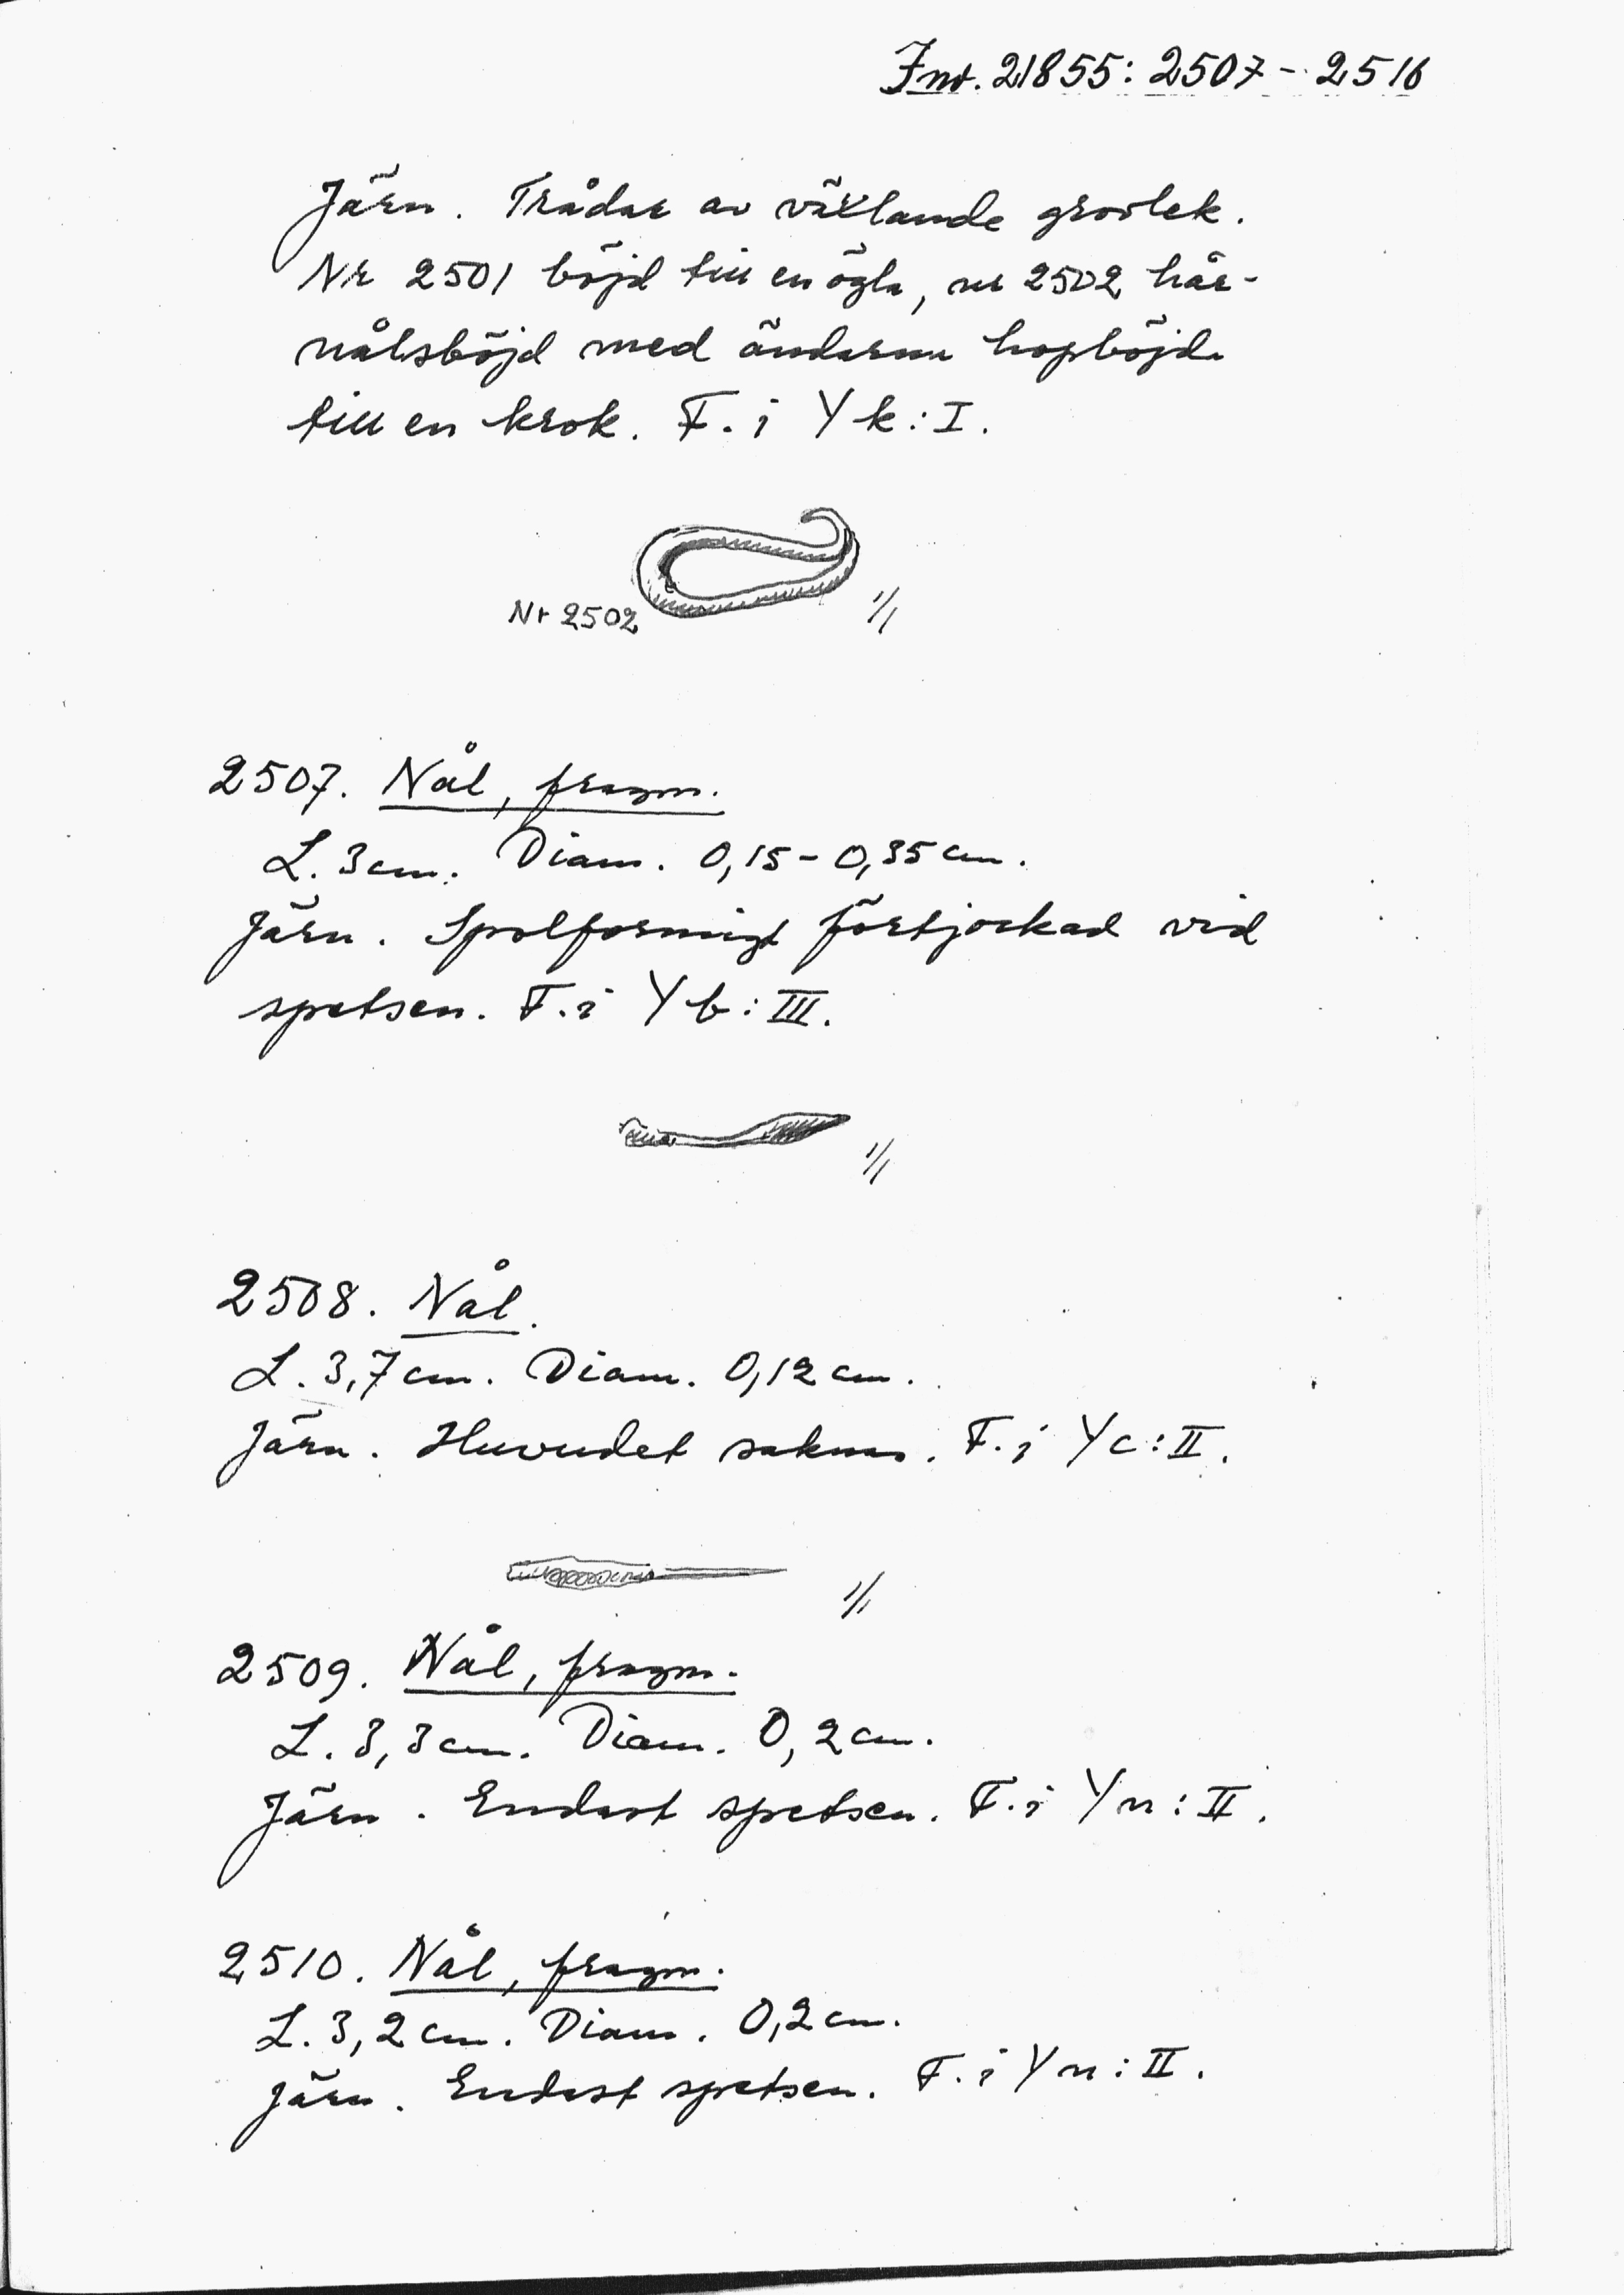 Inv. 21855: 2507 - 2516
Järn. Trådar av växlande grovlek.
Nr 2501 böjd till en ögla, nr 2502 hår-
nålsböjd med ändarna hopböjda
till en krok. F. i Yk: I.
Nr 2502 1/1
2507. Nål, fragm.
L. 3 cm. Diam. 0,15 - 0,35 cm.
Järn. Spolformigt förtjockad vid
spetsen. F. i Yb: III.
1/1
2508. Nål.
L. 3,7 cm. Diam. 0,12 cm.
Järn. Huvudet saknas. F. i Yc: II.
1/1
2509. Nål, fragm.
L. 3,3 cm. Diam. 0,2 cm.
Järn. Endast spetsen. F. i Yn: II.
2510. Nål, fragm.
L. 3,2 cm. Diam. 0,2 cm.
Järn. Endast spetsen. F. i Yn: II.